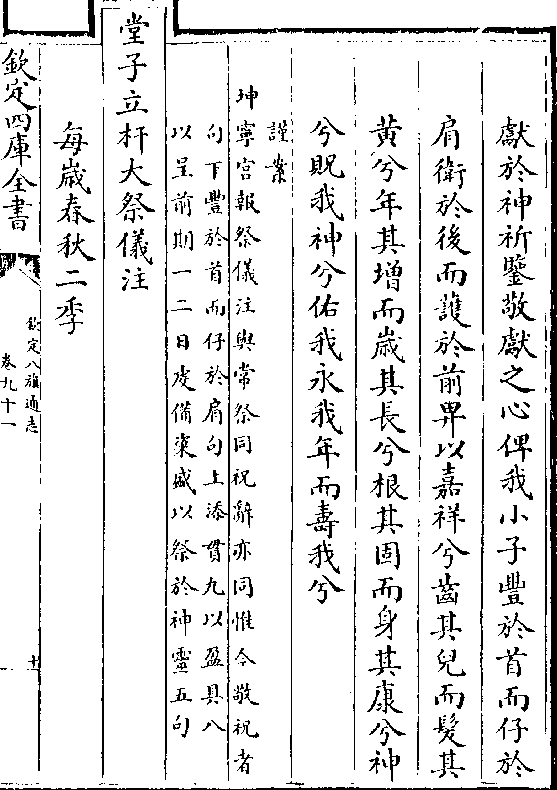 獻於神祈鑒敬獻之心俾我小子豐於首而仔於
肩衛於後而護於前畀以嘉祥兮齒其兒而髮其
黄兮年其増而歲其長兮根其固而身其康兮神
兮貺我神兮佑我永我年而壽我兮
謹案
坤寧宫報祭儀注與常祭同祝辭亦同惟今敬祝者
句下豐於首而仔於肩句上添貫九以盈具八
以呈前期一二日虔備粢盛以祭於神靈五句
堂子立杆大祭儀注
每歲春秋二季
欽定四庫全書
欽定八旗通志
卷九十一
十